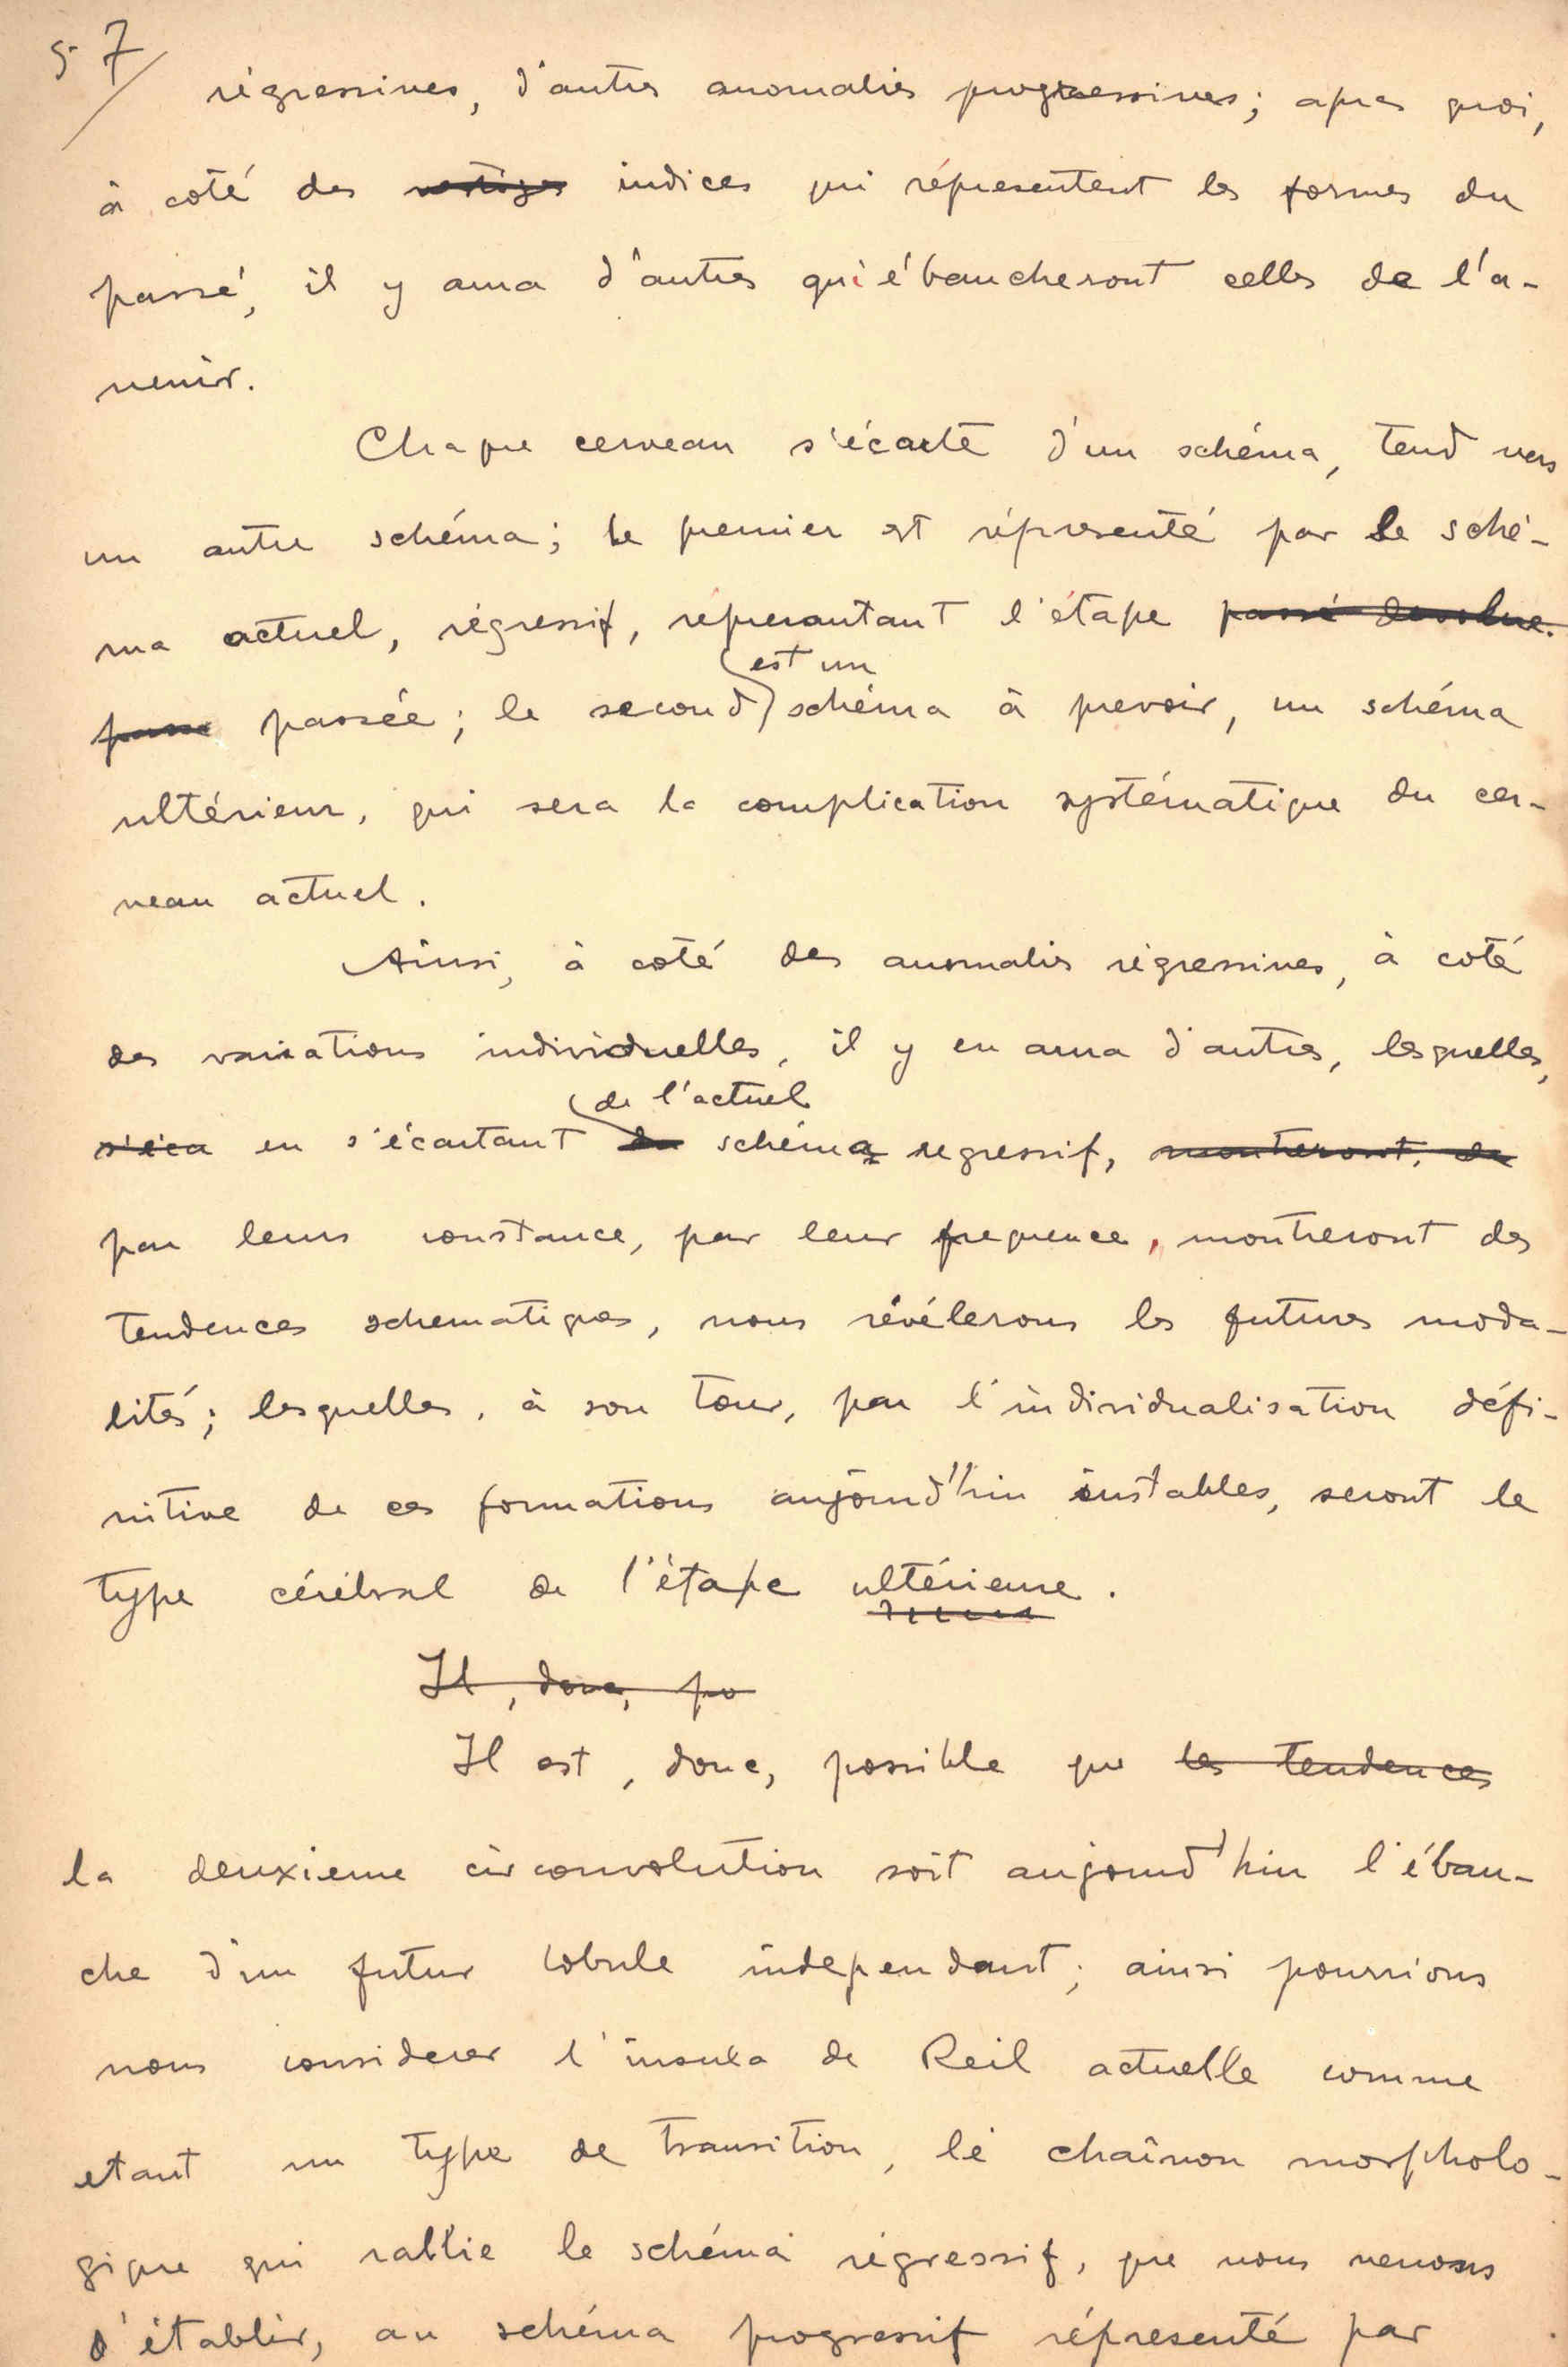 57/
régressives, d'autres anomalies progressives; apres quoi,
à coté des vestiges indices qui répresentent les formes du
passé, il y aura d'autres qui ébaucheront celles de l'a-
venir.
Chaque cerveau s'écarte d'un schéma, tend vers
un autre schéma; le premier est répresenté par le sché-
ma actuel, régressif, représantant l'étape passé
passée; le second est un schéma à prevoir, un schéma
ultérieur, qui sera la complication systématique du cer-
veau actuel.
Ainsi, à coté des anomalies régressives, à coté
des variations individuelles, il y en aura d'autres, lesquelles,
s'éca en s'écartant du de l'actuel schéma regressif, montreront, de
par leurs constance, par leur frequence, montreront des
tendences schematiques, nous révélerons les futures moda-
lités; lesquelles, à son tour, par l'individualisation défi-
nitive de ces formations aujourd'hui instables, seront le
type cérébral de l'étape ultérieure.
Il, donc, po
Il est, donc, possible que les tendences
la deuxieme circonvolution soit aujourd'hui l'ébau-
che d'un futur lobule independant; ainsi pourrions
nous considerer l'insula de Reil actuelle comme
etant un type de transition, le chaînon morpholo-
gique qui rallie le schéma régressif, que nous venons
d'établir, au schéma progressif répresenté par